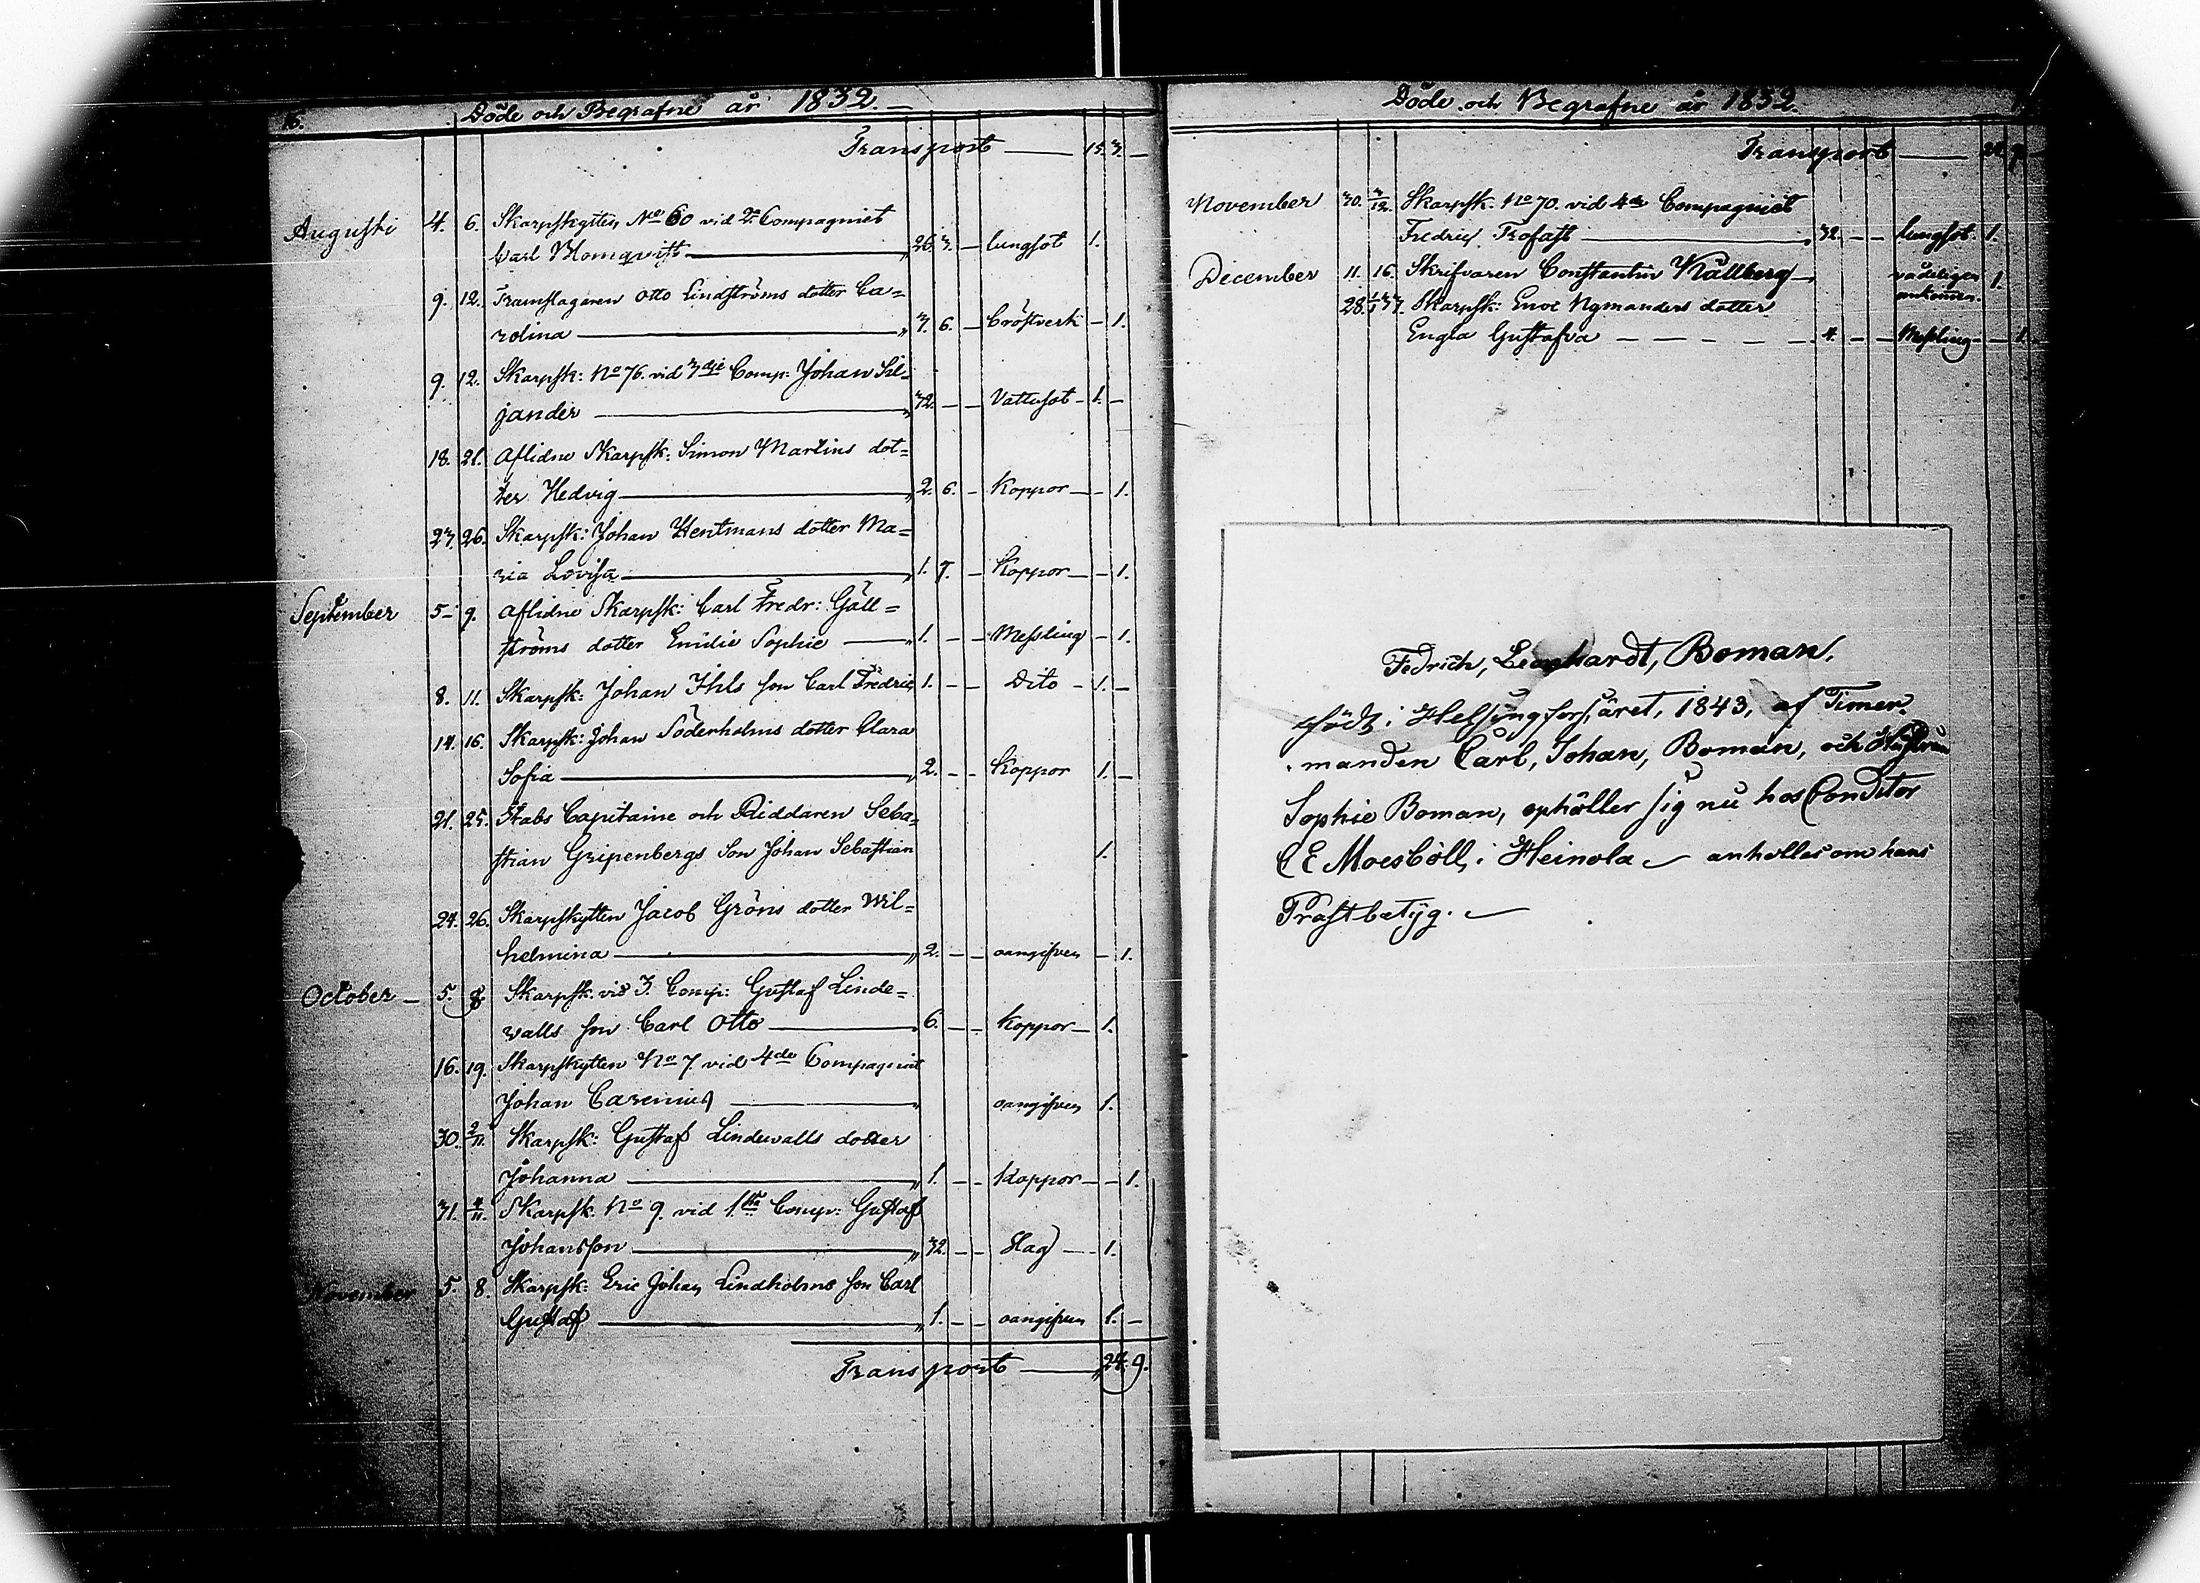 16.
Döde och Begrafne år 1832.
Transport — 15. 3. —
Augusti 4. 6. Skarpskytten No 60 vid 2a Compagniet
Carl Blomqvist — 26. 3. — lungsot 1.
9. 12. Tramslagaren Otto Lindströms dotter Ca=
rolina — 3. 6. — Bröstverk — 1.
9. 12. Skarpsk: No 76. vid 3dje Comp: Johan Sil=
jander — 32. — — Vattusot — 1. —
18. 21. Aflidne Skarpsk: Simon Martins dot=
ter Hedvig — 2. 6. — Koppor — — 1.
23. 26. Skarpsk: Johan Hentmans dotter Ma=
ria Lovisa — 1. 7. — Koppor — — 1.
September 5 — 9. Aflidne Skarpsk: Carl Fredr: Gäll=
ströms dotter Emilie Sophie — 1. — — Messling — 1.
8. 11. Skarpsk: Johan Ihls son Carl Fredric 1. — — Dito — 1. —
14. 16. Skarpsk: Johan Söderholms dotter Clara
Sofia — 2. — — Koppor 1. —
21. 25. Stabs Capitaine och Riddaren Seba=
stian Gripenbergs Son Johan Sebastian 1.
24. 26. Skarpskytten Jacob Gröns dotter Wil=
helmina — 2. — — oangifven — 1.
October — 5. 8. Skarpsk. vid 3. Comp: Gustaf Linde=
walls son Carl Otto — 6. — — Koppor — 1.
16. 19. Skarpskytten No 7 vid 4de Compagniet
Johan Carenius — oangifven 1.
30. 2/11. Skarpsk: Gustaf Lindewalls dotter
Johanna — 1. — — Koppor — — 1.
31. 4/11. Skarpsk. No 9. vid 1sta Comp: Gustaf
Johansson — 32. — — Slag — 1.
November 5. 8. Skarpsk: Eric Johan Lindholms son Carl
Gustaf — 1. — — oangifven 1. —
Transport — 24. 9.
Döde och Begrafne år 1832.
Transport — 24. 9. —
November 30. 3/12. Skarpsk. No 70. vid 4de Compagniet
Fredric Trofast — 32. — — lungsot 1.
December 11. 16. Skrifvaren Constantin Källberg — vådeligen 1.
omkommen.
28. Skarpsk: Enoc Nymanders dotter
Engla Gustafva — — — — — 4. — — Messling — — 1.
Fedrich, Leonhardt, Boman,
född i Helsingfors, året, 1843, af Timer=
manden Carl, Johan, Boman, och Hustrun
Sophie Boman, ophåller sig nu hos Conditor
C E Moesböll, i Heinola — anholles om hans
Prastbetÿg. —